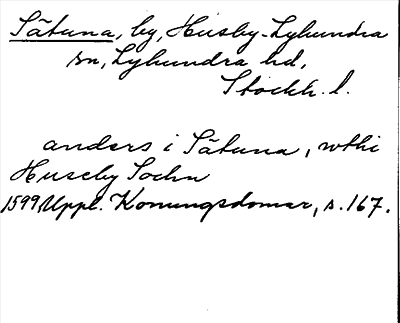 Såtuna, by, Husby-Lyhundra
sn, Lyhundra hd,
Stockh. l.
anders i Såtuna, wthi
Huseby Sochn
1599, Uppl. Konungsdomar, s. 167.